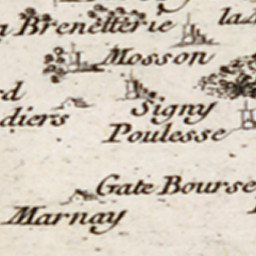 la Brenetterie
la
Mosson
rd
diers
Signy
Poulesse
Gate Bourse
Marnay